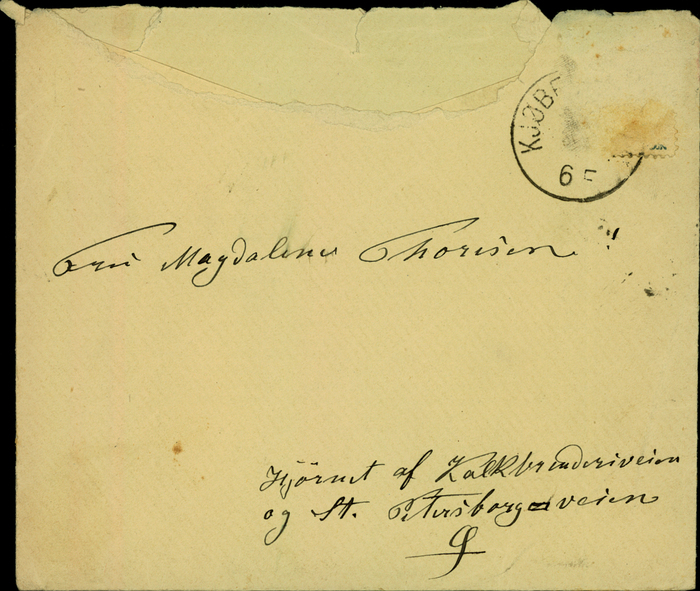 KJØB
6
Fru Magdalene Thoresen
Hjörnet af Kalkbrænderiveien
og St. Petersborgveien
Ø